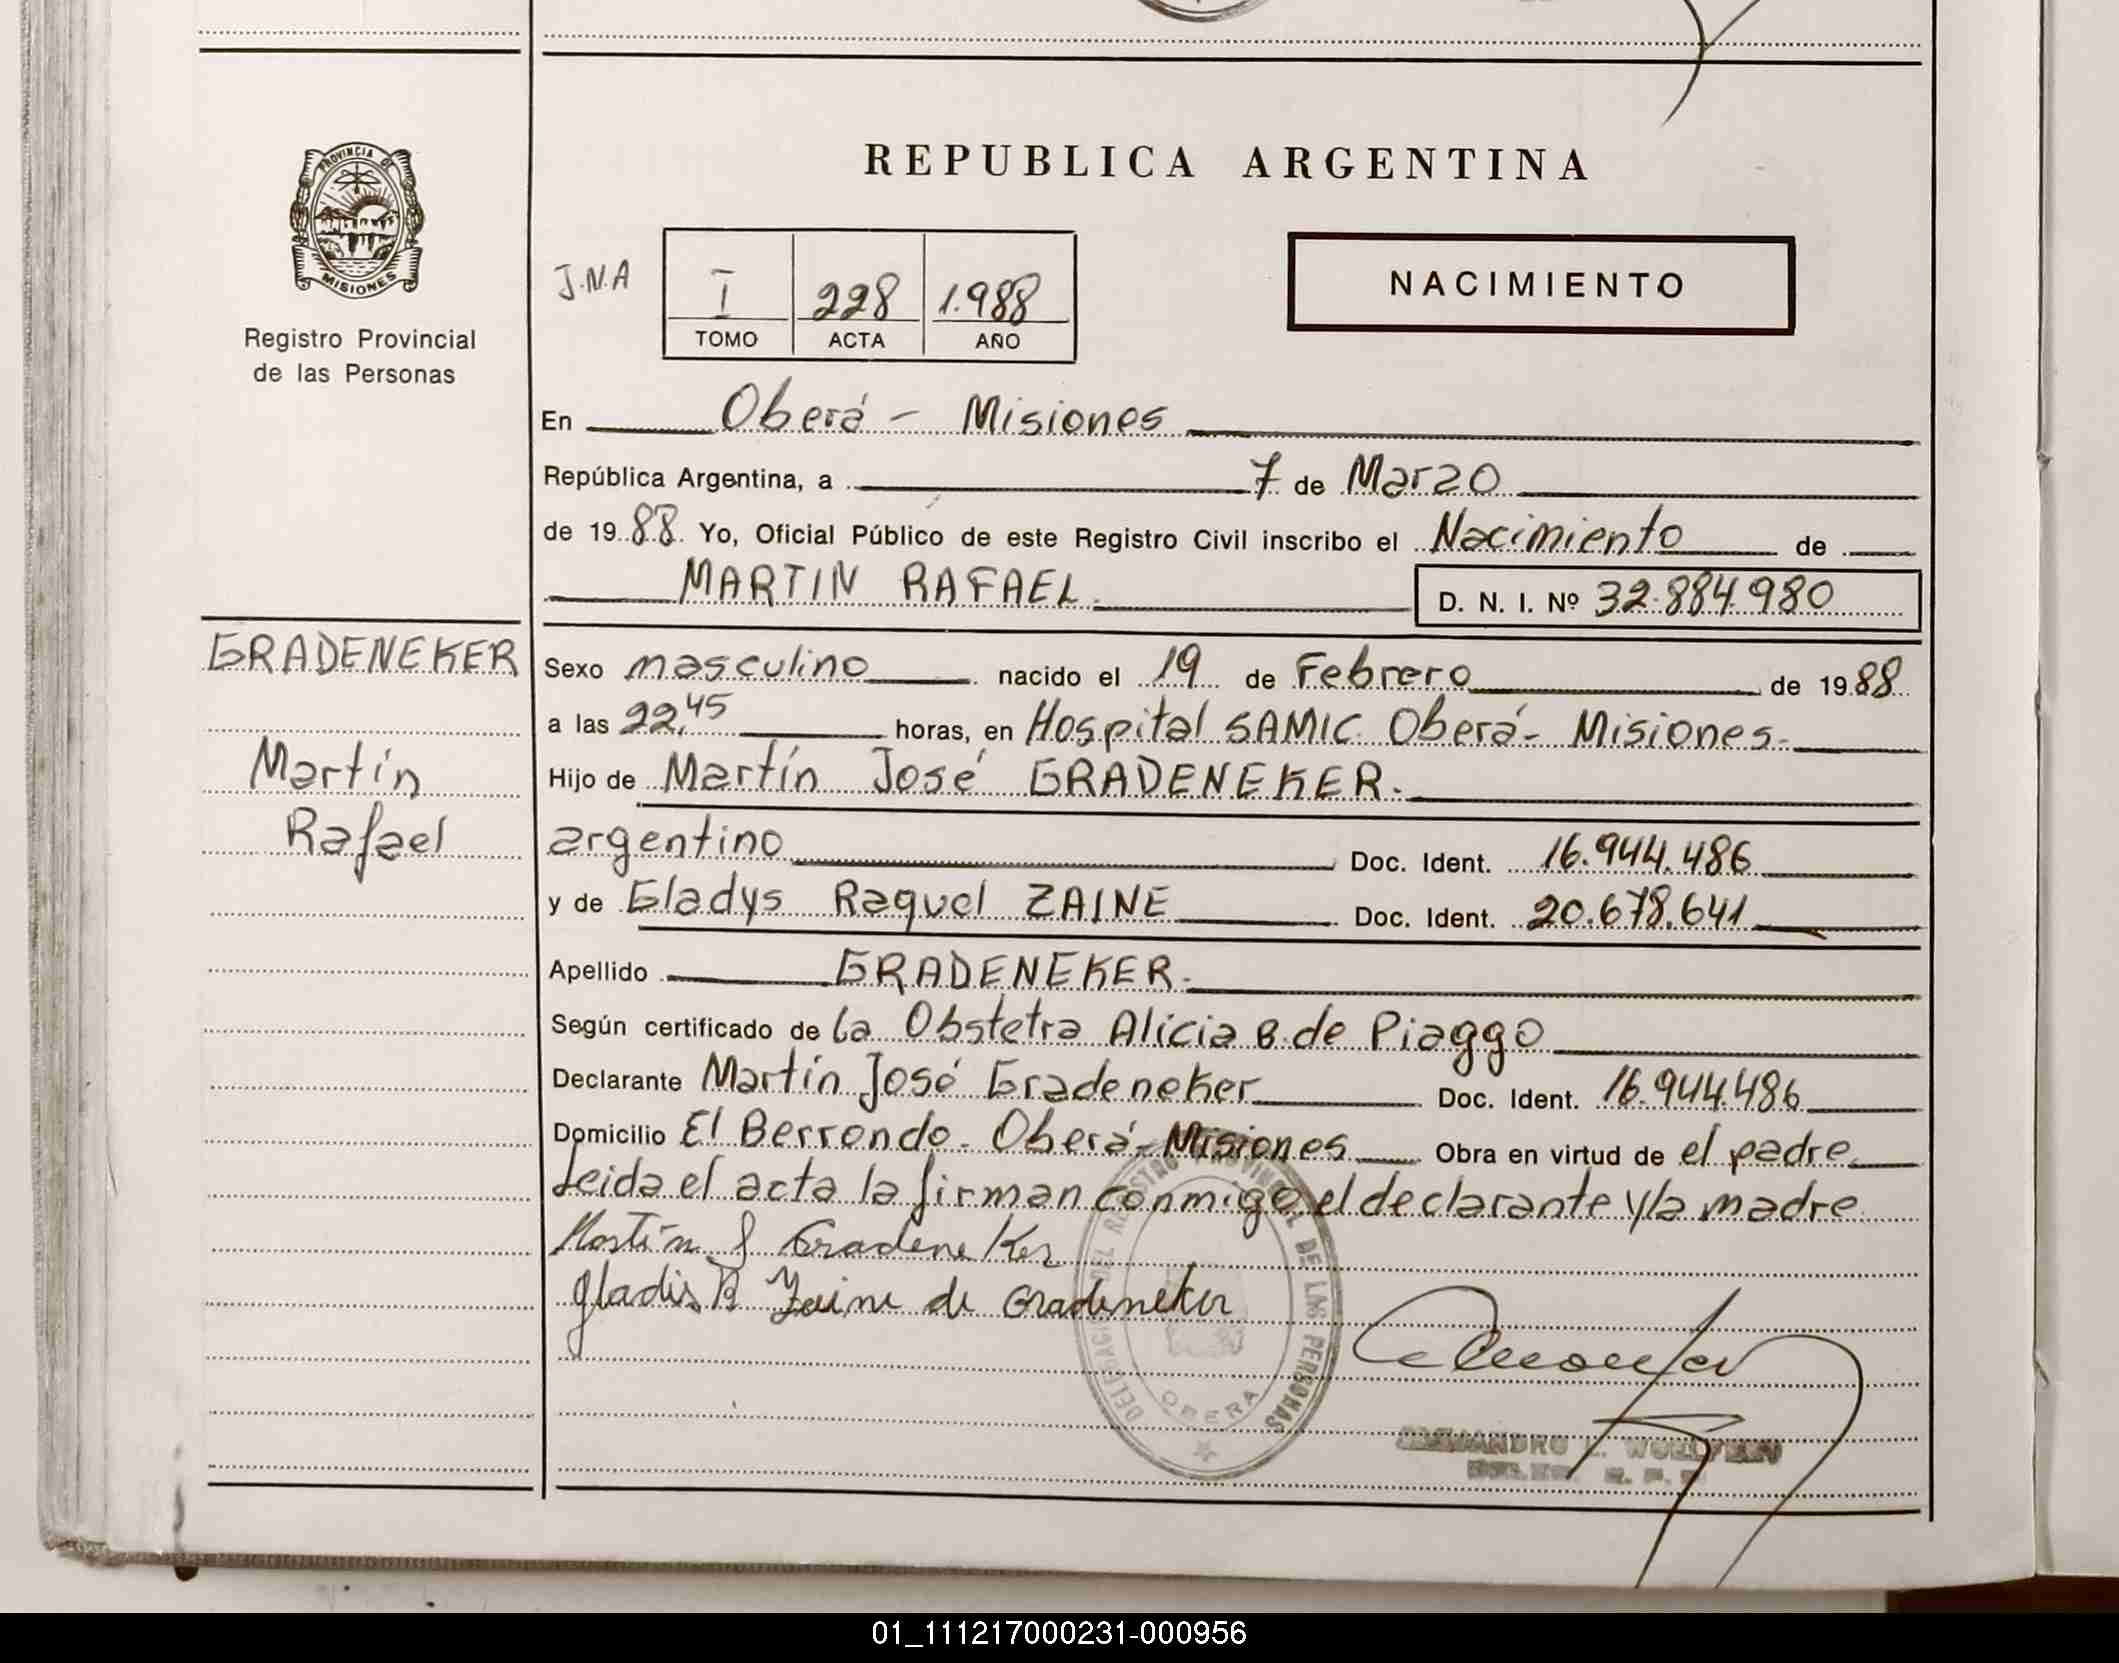 PROVINCIA DE
MISIONES
Registro Provincial
de las Personas
GRADENEKER
Martín
Rafael
REPUBLICA ARGENTINA
J.N.A
I 228 1.988
TOMO ACTA AÑO
NACIMIENTO
En Oberá - Misiones
República Argentina, a 7 de Marzo
de 19 88 Yo, Oficial Público de este Registro Civil inscribo el Nacimiento de
MARTIN RAFAEL. D. N. I. Nº 32.884.980
Sexo masculino nacido el 19 de Febrero de 19 88
a las 22,45 horas, en Hospital SAMIC Oberá - Misiones -
Hijo de Martín José GRADENEKER.
argentino Doc. Ident. 16.944.486
y de Gladys Raquel ZAINE Doc. Ident. 20.678.641
Apellido GRADENEKER.
Según certificado de la Obstetra Alicia B. de Piaggo
Declarante Martín José Gradeneker Doc. Ident. 16.944.486
Domicilio El Berrondo - Oberá - Misiones Obra en virtud de el padre
Leida el acta la firman conmigo el declarante y la madre
Martín J Gradeneker
Gladis R Zaine de Gradeneker
DELEGACION DEL REGISTRO PROVINCIAL DE LAS PERSONAS
OBERA
ALEJANDRO L.
01_111217000231-000956